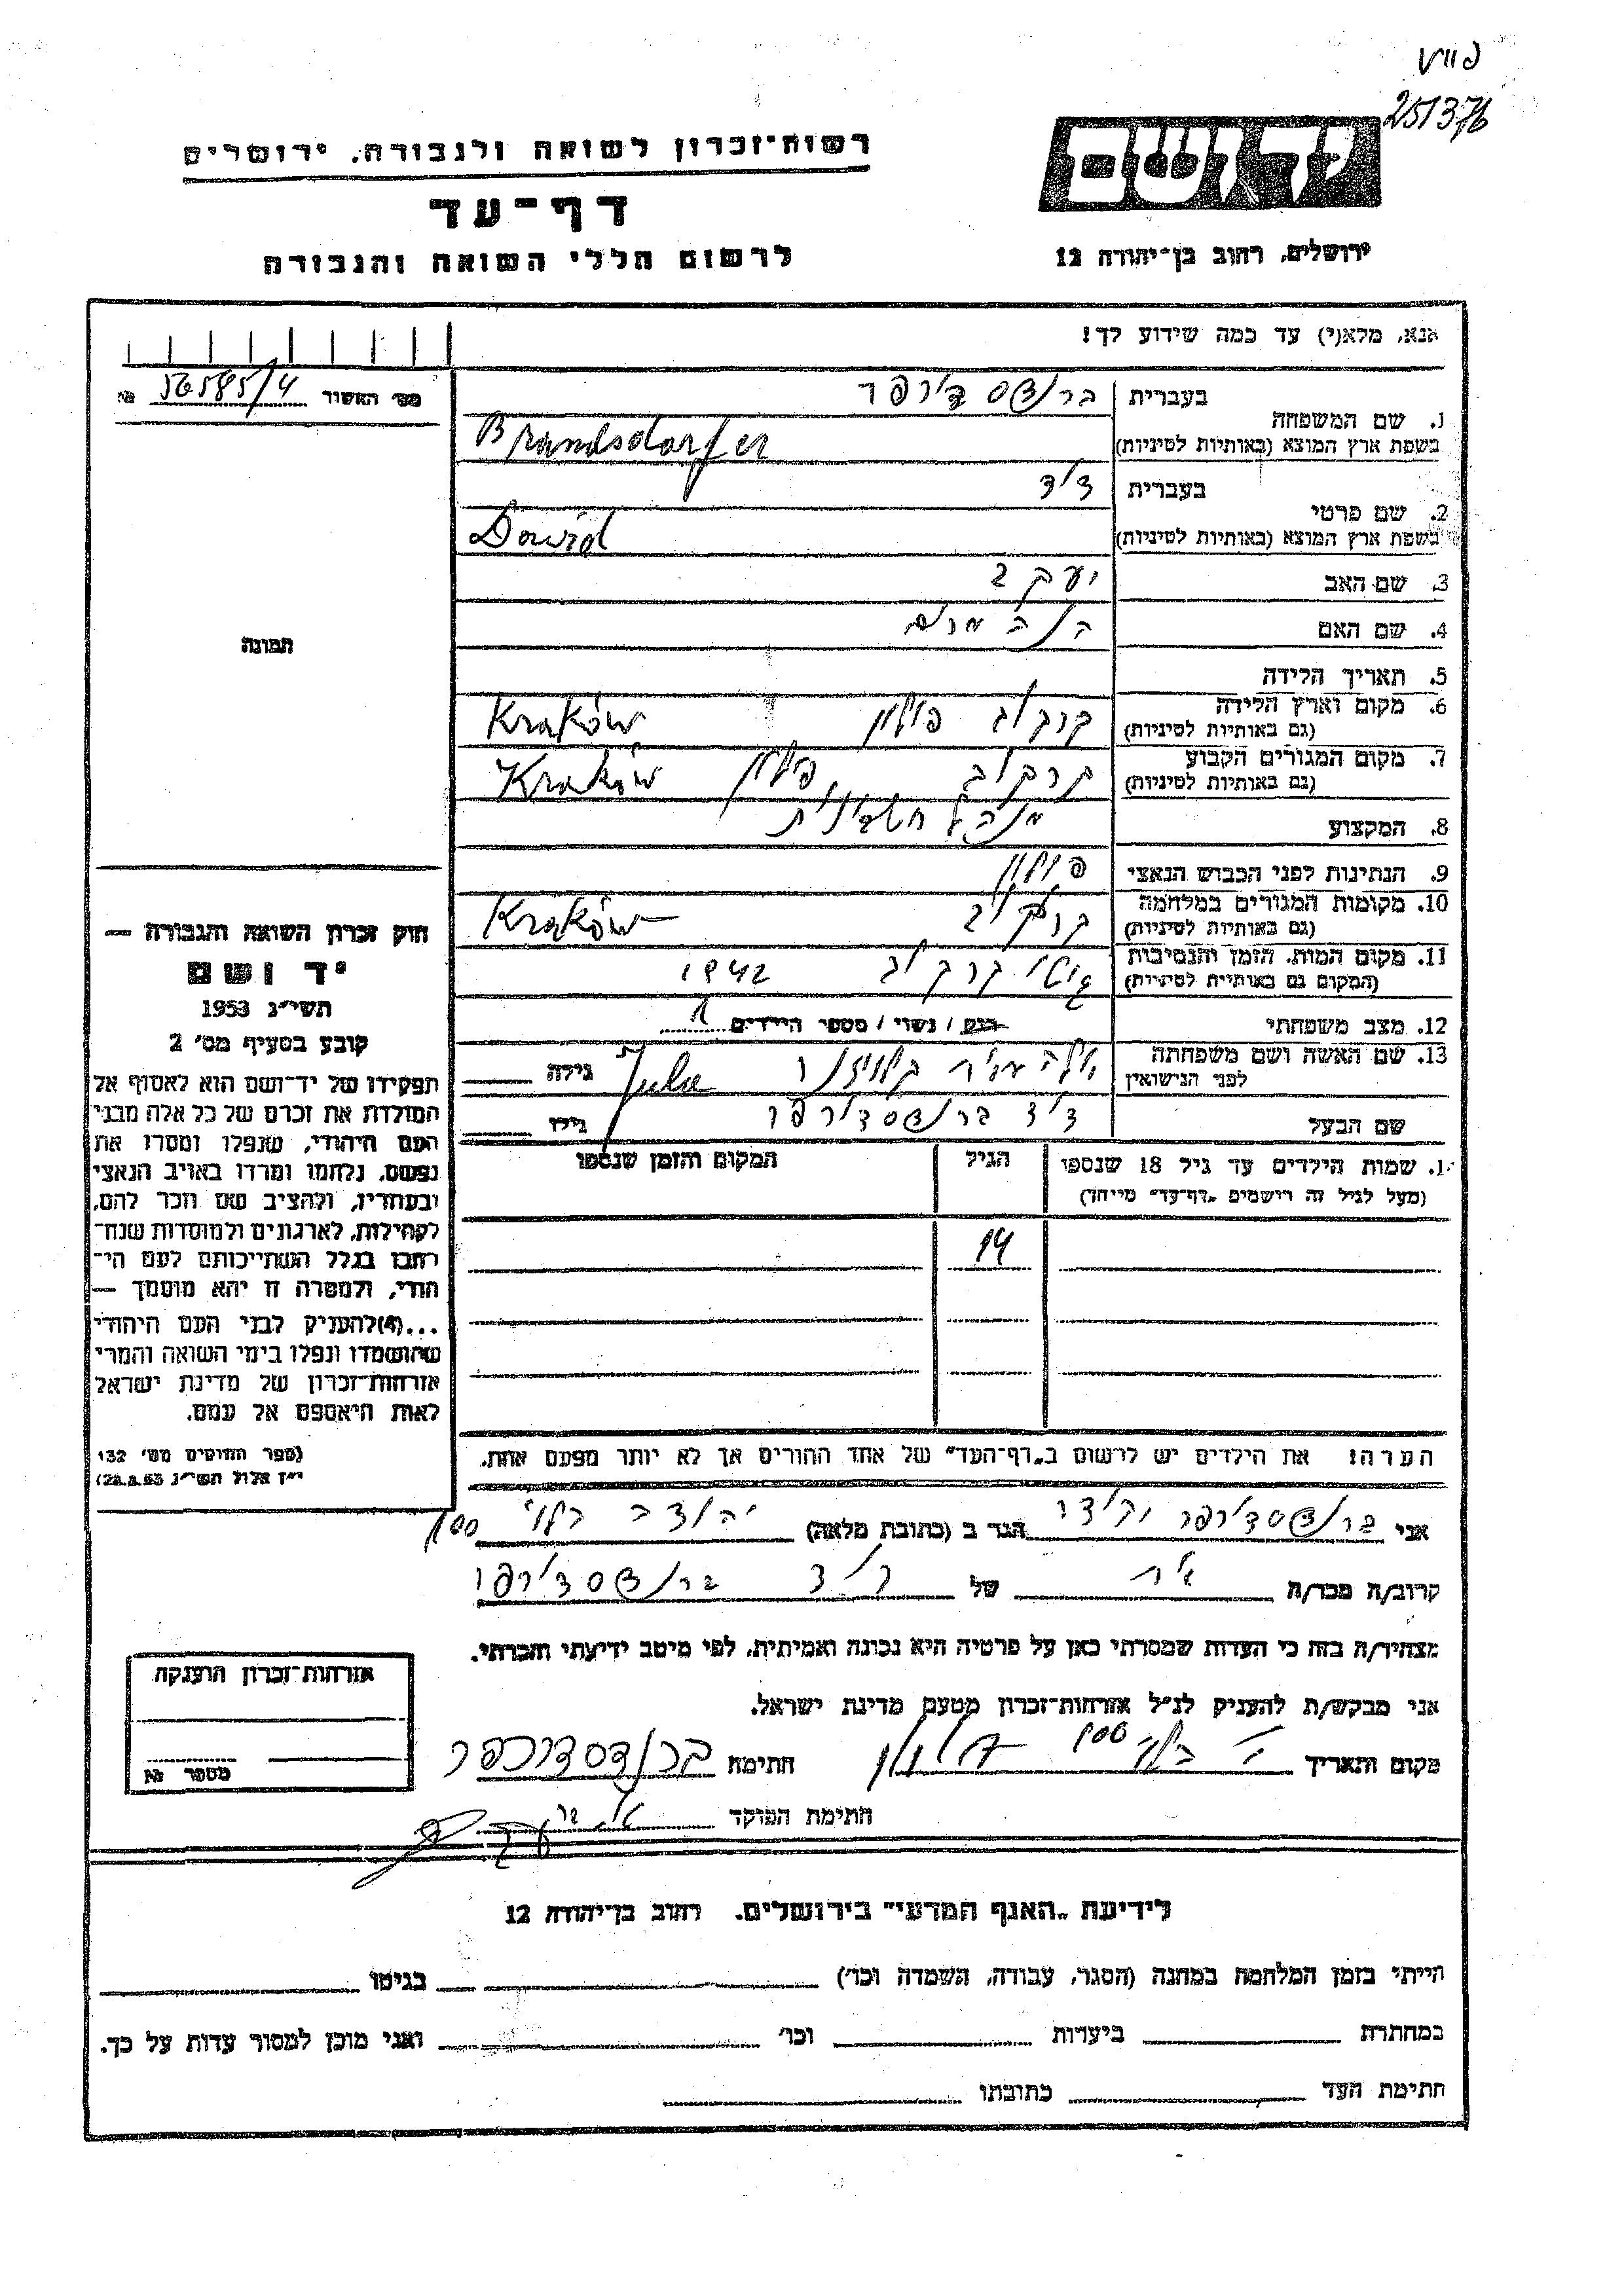 251376
יד ושם
רשות־זכרון לשואה ולגבורה, ירושלים
דף־עד
לרשום חללי השואה והגבורה
ירושלים, רחוב בן־יהודה 12
אנא, מלא(י) עד כמה שידוע לך!
מס׳ האשור 56585/4 №
1. שם המשפחה
בעברית ברנדסדורפר
בשפת ארץ המוצא (באותיות לטיניות) Brandsdorfer
2. שם פרטי
בעברית דוד
בשפת ארץ המוצא (באותיות לטיניות) Dawid
3. שם האב יעקב
4. שם האם חנה מרים
5. תאריך הלידה
6. מקום וארץ הלידה
(גם באותיות לטיניות) קרקוב פולין Kraków
7. מקום המגורים הקבוע
(גם באותיות לטיניות) קרקוב פולין Kraków
8. המקצוע מנהל חשבונות
9. הנתינות לפני הכבוש הנאצי פולין
10. מקומות המגורים במלחמה
(גם באותיות לטיניות) קרקוב Kraków
11. מקום המות, הזמן והנסיבות
(המקום גם באותיות לטיניות) גטו קרקוב 1942
12. מצב משפחתי רווק / נשוי / מספר הילדים 1
13. שם האשה ושם משפחתה
לפני הנישואין Julia גילה
שם הבעל דוד ברנדסדורפר גילו
1. שמות הילדים עד גיל 18 שנספו
(מעל לגיל זה רישמים „דף־עד״ מייחד)
הגיל
המקום והזמן שנספו
14
הערה! את הילדים יש לרשום ב„דף־העד״ של אחד ההורים אך לא יותר מפעם אחת.
תמונה
חוק זכרון השואה והגבורה —
יד ושם
תשי״ג 1953
קובע בסעיף מס׳ 2
תפקידו של יד־ושם הוא לאסוף אל
המולדת את זכרם של כל אלה מבני
העם היהודי, שנפלו ומסרו את
נפשם, נלחמו ומרדו באויב הנאצי
ובעוזריו, ולהציב שם וזכר להם,
לקהילות, לארגונים ולמוסדות שנח־
רבו בגלל השתייכותם לעם הי־
הודי, ולמטרה זו יהא מוסמך —
...(4)להעניק לבני העם היהודי
שהושמדו ונפלו בימי השואה והמרי
אזרחות־זכרון של מדינת ישראל
לאות היאספם אל עמם.
(ספר החוקים מס׳ 132
י״ז אלול תשי״ג 28.8.53)
אני ברנדסדורפר הגר ב (כתובת מלאה) יהודה הלוי 100
קרוב/ה מכר/ה של דוד ברנדסדורפר
מצהיר/ה בזה כי העדות שמסרתי כאן על פרטיה היא נכונה ואמיתית, לפי מיטב ידיעתי והכרתי.
אני מבקש/ת להעניק לנ״ל אזרחות־זכרון מטעם מדינת ישראל.
מקום ותאריך חתימה ברנדסדורפר
חתימת הפוקד
אזרחות־זכרון הוענקה
מספר №
לידיעת „האגף המדעי״ בירושלים. רחוב בן־יהודה 12
הייתי בזמן המלחמה במחנה (הסגר, עבודה, השמדה וכו׳) בגיטו
במחתרת ביערות וכו׳ ואני מוכן למסור עדות על כך.
חתימת העד כתובתו